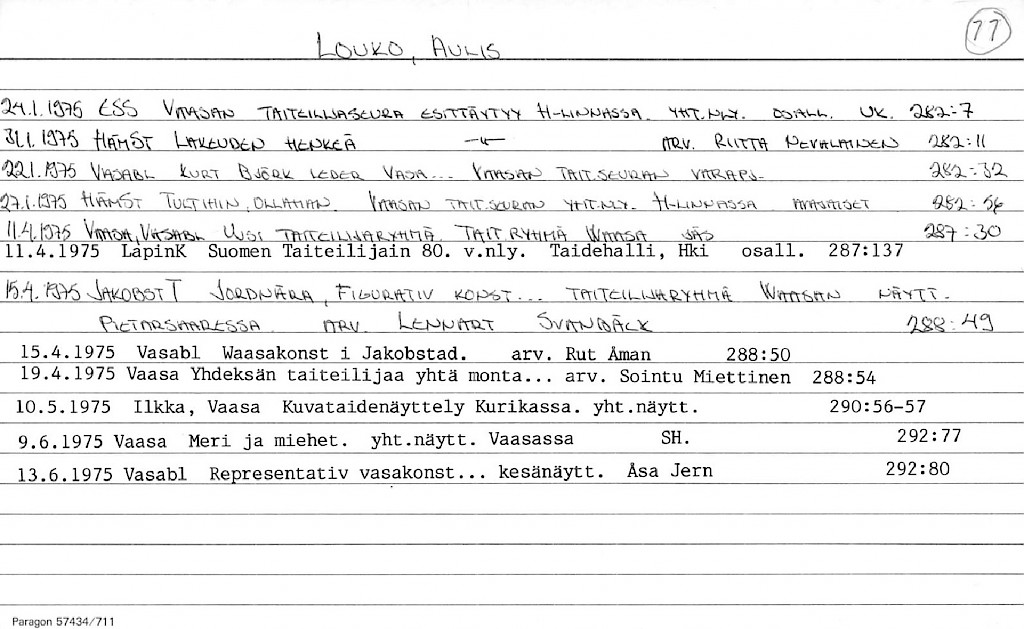 77
LOUKO, AULIS
24.1.1975 ESS VAASAN TAITEILIJASEURA ESITTÄYTYY H-LINNASSA. YHT.NLY. OSALL. UK. 282:7
31.1.1975 HÄMST LAKEUDEN HENKEÄ —"— ARV. RIITTA NEVALAINEN 282:11
22.1.1975 VASABL KURT BJÖRK LEDER VASA... VAASAN TAIT.SEURAN VARAPJ. 282:32
27.1.1975 HÄMST TULTIHIN, OLLAHAN. VAASAN TAIT.SEURAN YHT.NLY. H-LINNASSA AVAJAISET 282:56
11.4.1975 VAASA, VASABL UUSI TAITEILIJARYHMÄ. TAIT.RYHMÄ WAASA JÄS 287:30
11.4.1975 LapinK Suomen Taiteilijain 80. v.nly. Taidehalli, Hki osall. 287:137
15.4.1975 JAKOBST T JORDNÄRA, FIGURATIV KONST... TAITEILIJARYHMÄ WAASAN NÄYTT.
PIETARSAARESSA. ARV. LENNART SVANBÄCK 288:49
15.4.1975 Vasabl Waasakonst i Jakobstad. arv. Rut Åman 288:50
19.4.1975 Vaasa Yhdeksän taiteilijaa yhtä monta... arv. Sointu Miettinen 288:54
10.5.1975 Ilkka, Vaasa Kuvataidenäyttely Kurikassa. yht.näytt. 290:56-57
9.6.1975 Vaasa Meri ja miehet. yht.näytt. Vaasassa SH. 292:77
13.6.1975 Vasabl Representativ vasakonst... kesänäytt. Åsa Jern 292:80
Paragon 57434/711